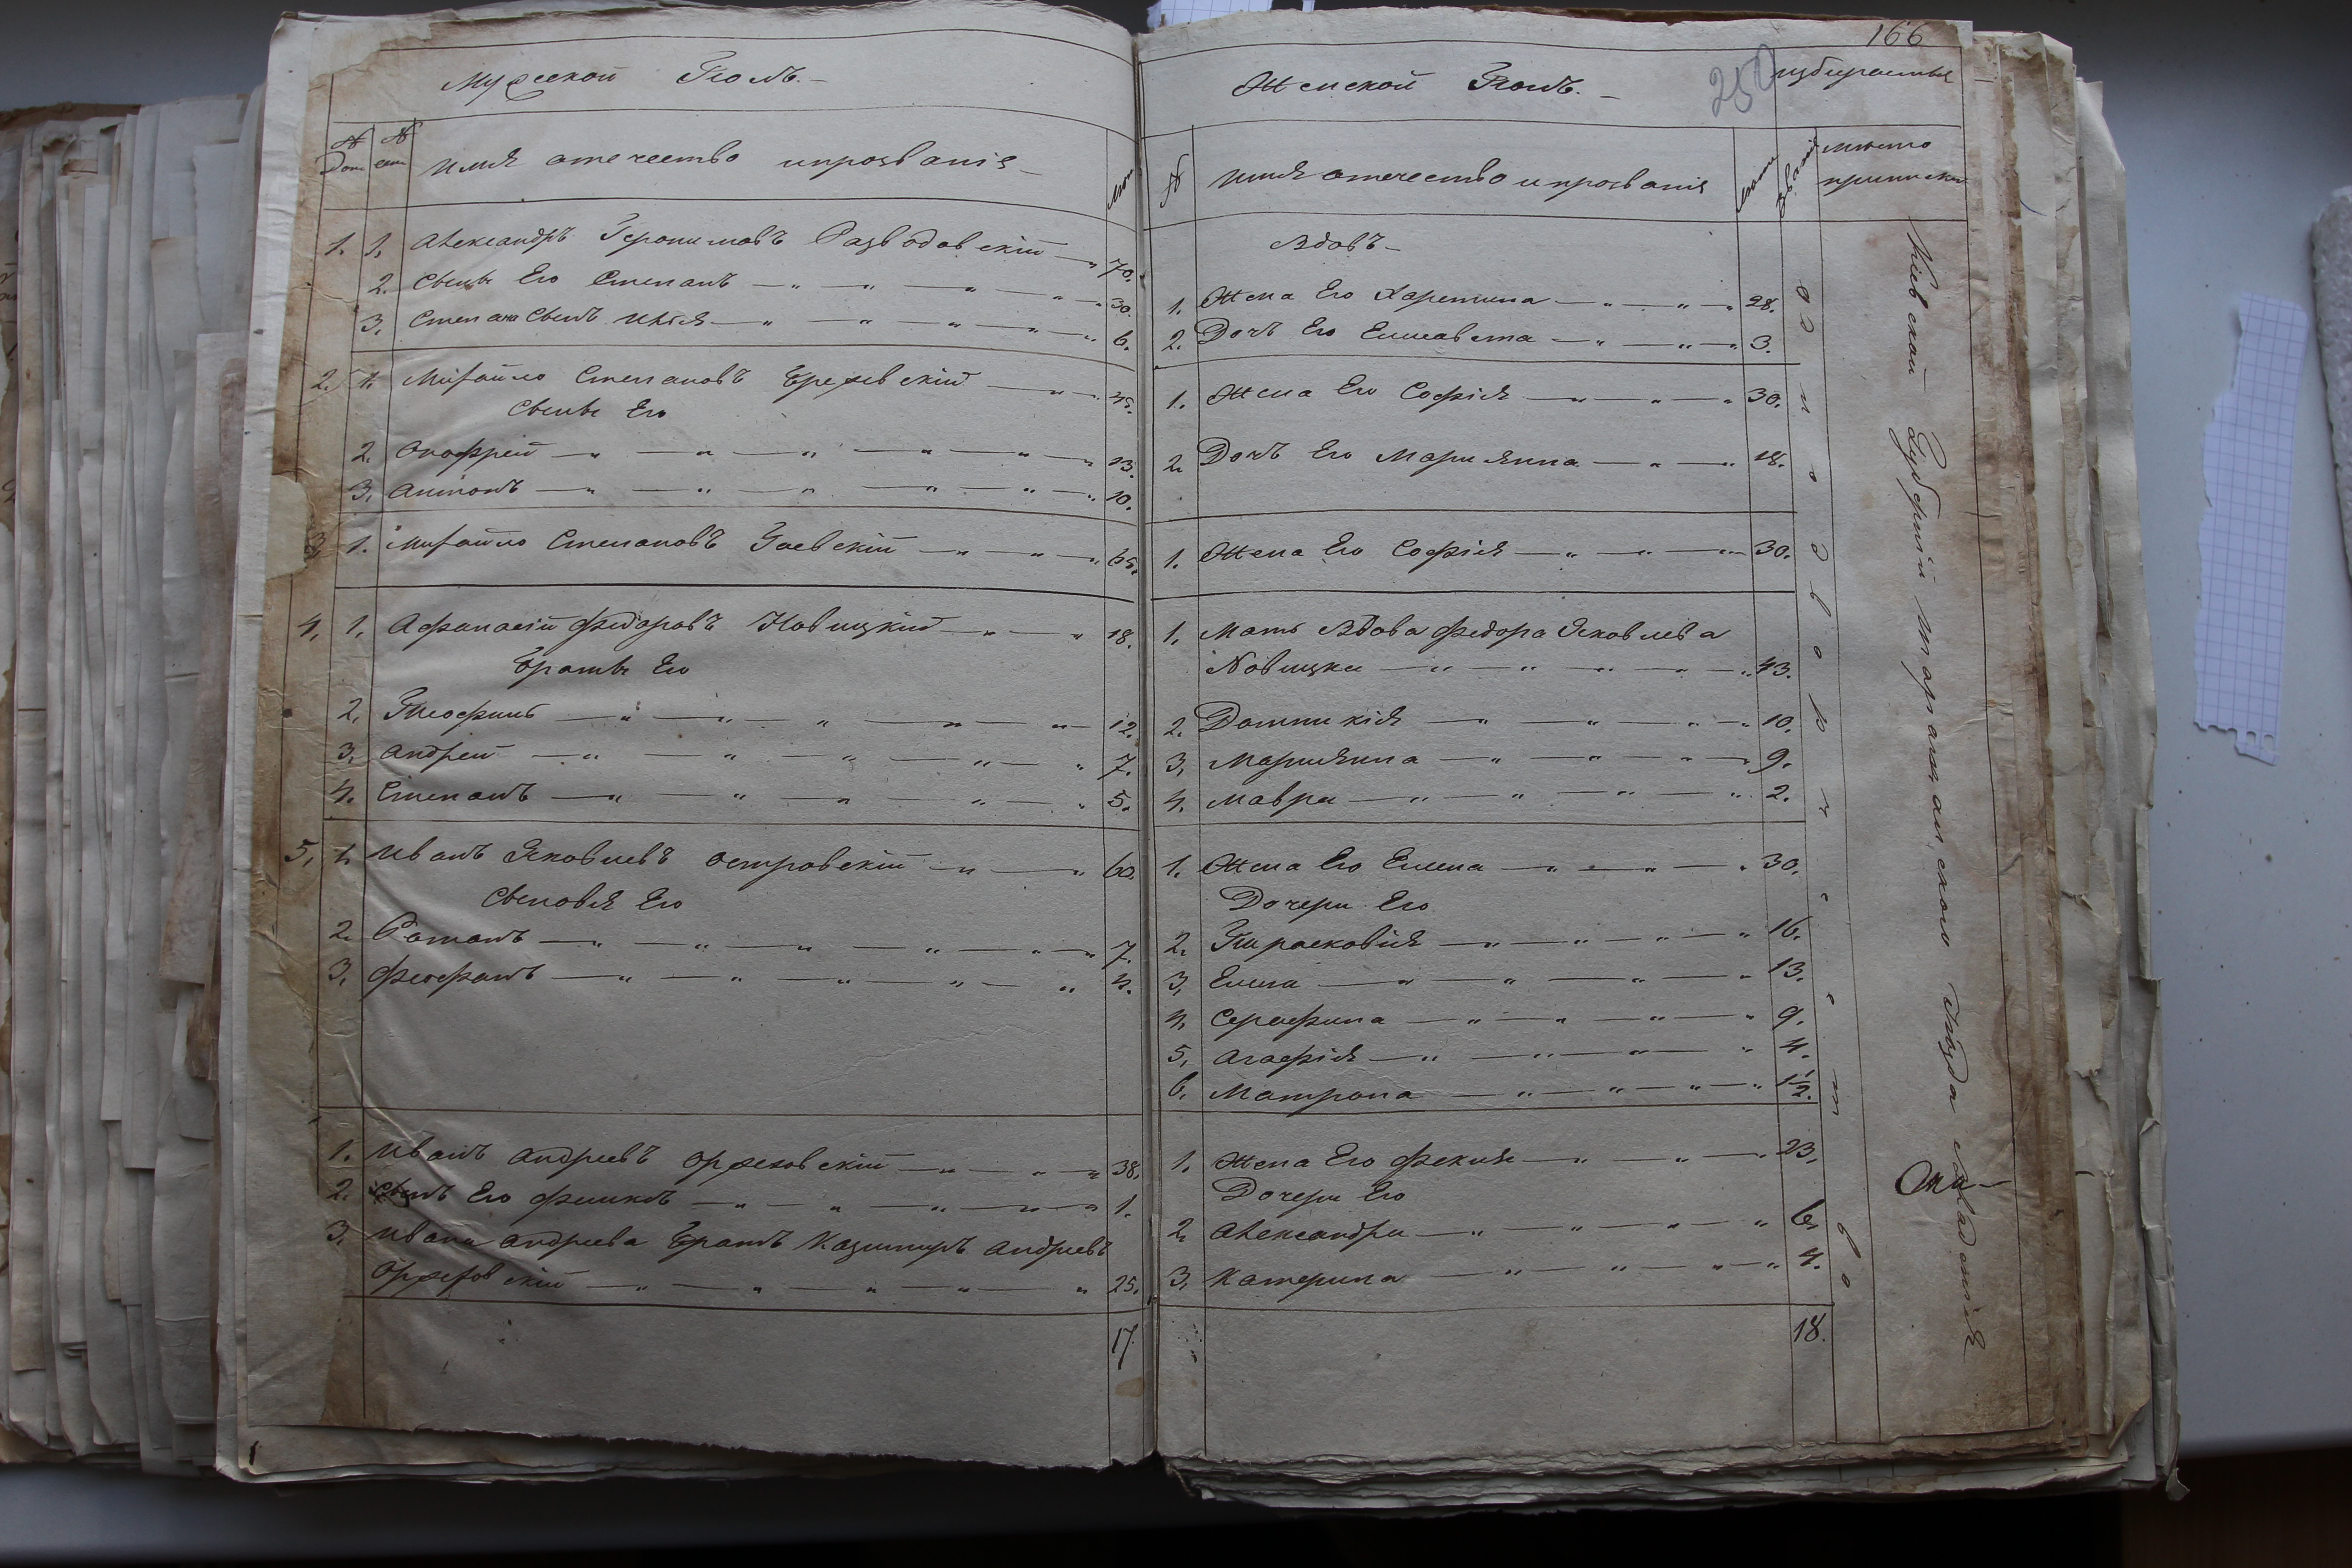 166
250
Мужеской Полъ. —
№ Дома
№ 
имя отечество ипрозванія —
лета
1. 1. Александръ Іеронимовъ Разводовскій — 70.
2. Сынъ Его Степанъ — " — " — " — " 30.
3. Степана Сынъ Илія — " — " — " — " 6.
2. 1. Михайло Степановъ Брежевскій — " 45.
Сыны Его
2. Онофрей — " — " — " — " — " — " 13.
3. Антонъ — " — " — " — " — " — " 10.
3. 1. Михайло Степановъ Гаевскій — " — " — " 65.
4. 1. Афанасій Федоровъ Новицкій — " — " 18.
Браты Его
2. Теофилъ — " — " — " — " — " — 12.
3. Андрей — " — " — " — " — " 7.
4. Степанъ — " — " — " — " — " 5.
5. 1. Иванъ Яковлевъ Островскій — " — " 60.
Сыновья Его
2. Романъ — " — " — " — " — " — " 7.
3. Феофанъ — " — " — " — " — " 4.
1. Иванъ Андреевъ Оржеховскій — " — " — " 38.
2. Сынъ Его Феликсъ — " — " — " — " — " 1.
3. Ивана Андреева Братъ Казимиръ Андреевъ
Оржеховскій — " — " — " — " — " 25.
17.
Женской Полъ. —
№
имя отечество и прозванія
лета
званіе
место приписки
Вдовъ —
1. Жена Его Харитина — " — " — " 28.
2. Дочь Его Елисавета — " — " — " 3.
1. Жена Его Софія — " — " — " 30.
2. Дочь Его Марианна — " — " 18.
1. Жена Его Софія — " — " — " 30.
1. Мать Вдова Федора Яковлева
Новицка — " — " — " — " — " 43.
2. Домникія — " — " — " — " 10.
3. Марианна — " — " — " — " 9.
4. Мавра — " — " — " — " 2.
1. Жена Его Елена — " — " — " 30.
Дочери Его
2. Парасковія — " — " — " — " 16.
3. Елена — " — " — " — " 13.
4. Серафина — " — " — " — " 9.
5. Агафія — " — " — " — " 4.
6. Матрона — " — " — " — " 1½.
1. Жена Его Фекла — " — " — " 23.
Дочери Его
2. Александра — " — " — " — " 6.
3. Катерина — " — " — " — " 4.
18.
однодворчество
Кіевской Губерніи таращанского уезда